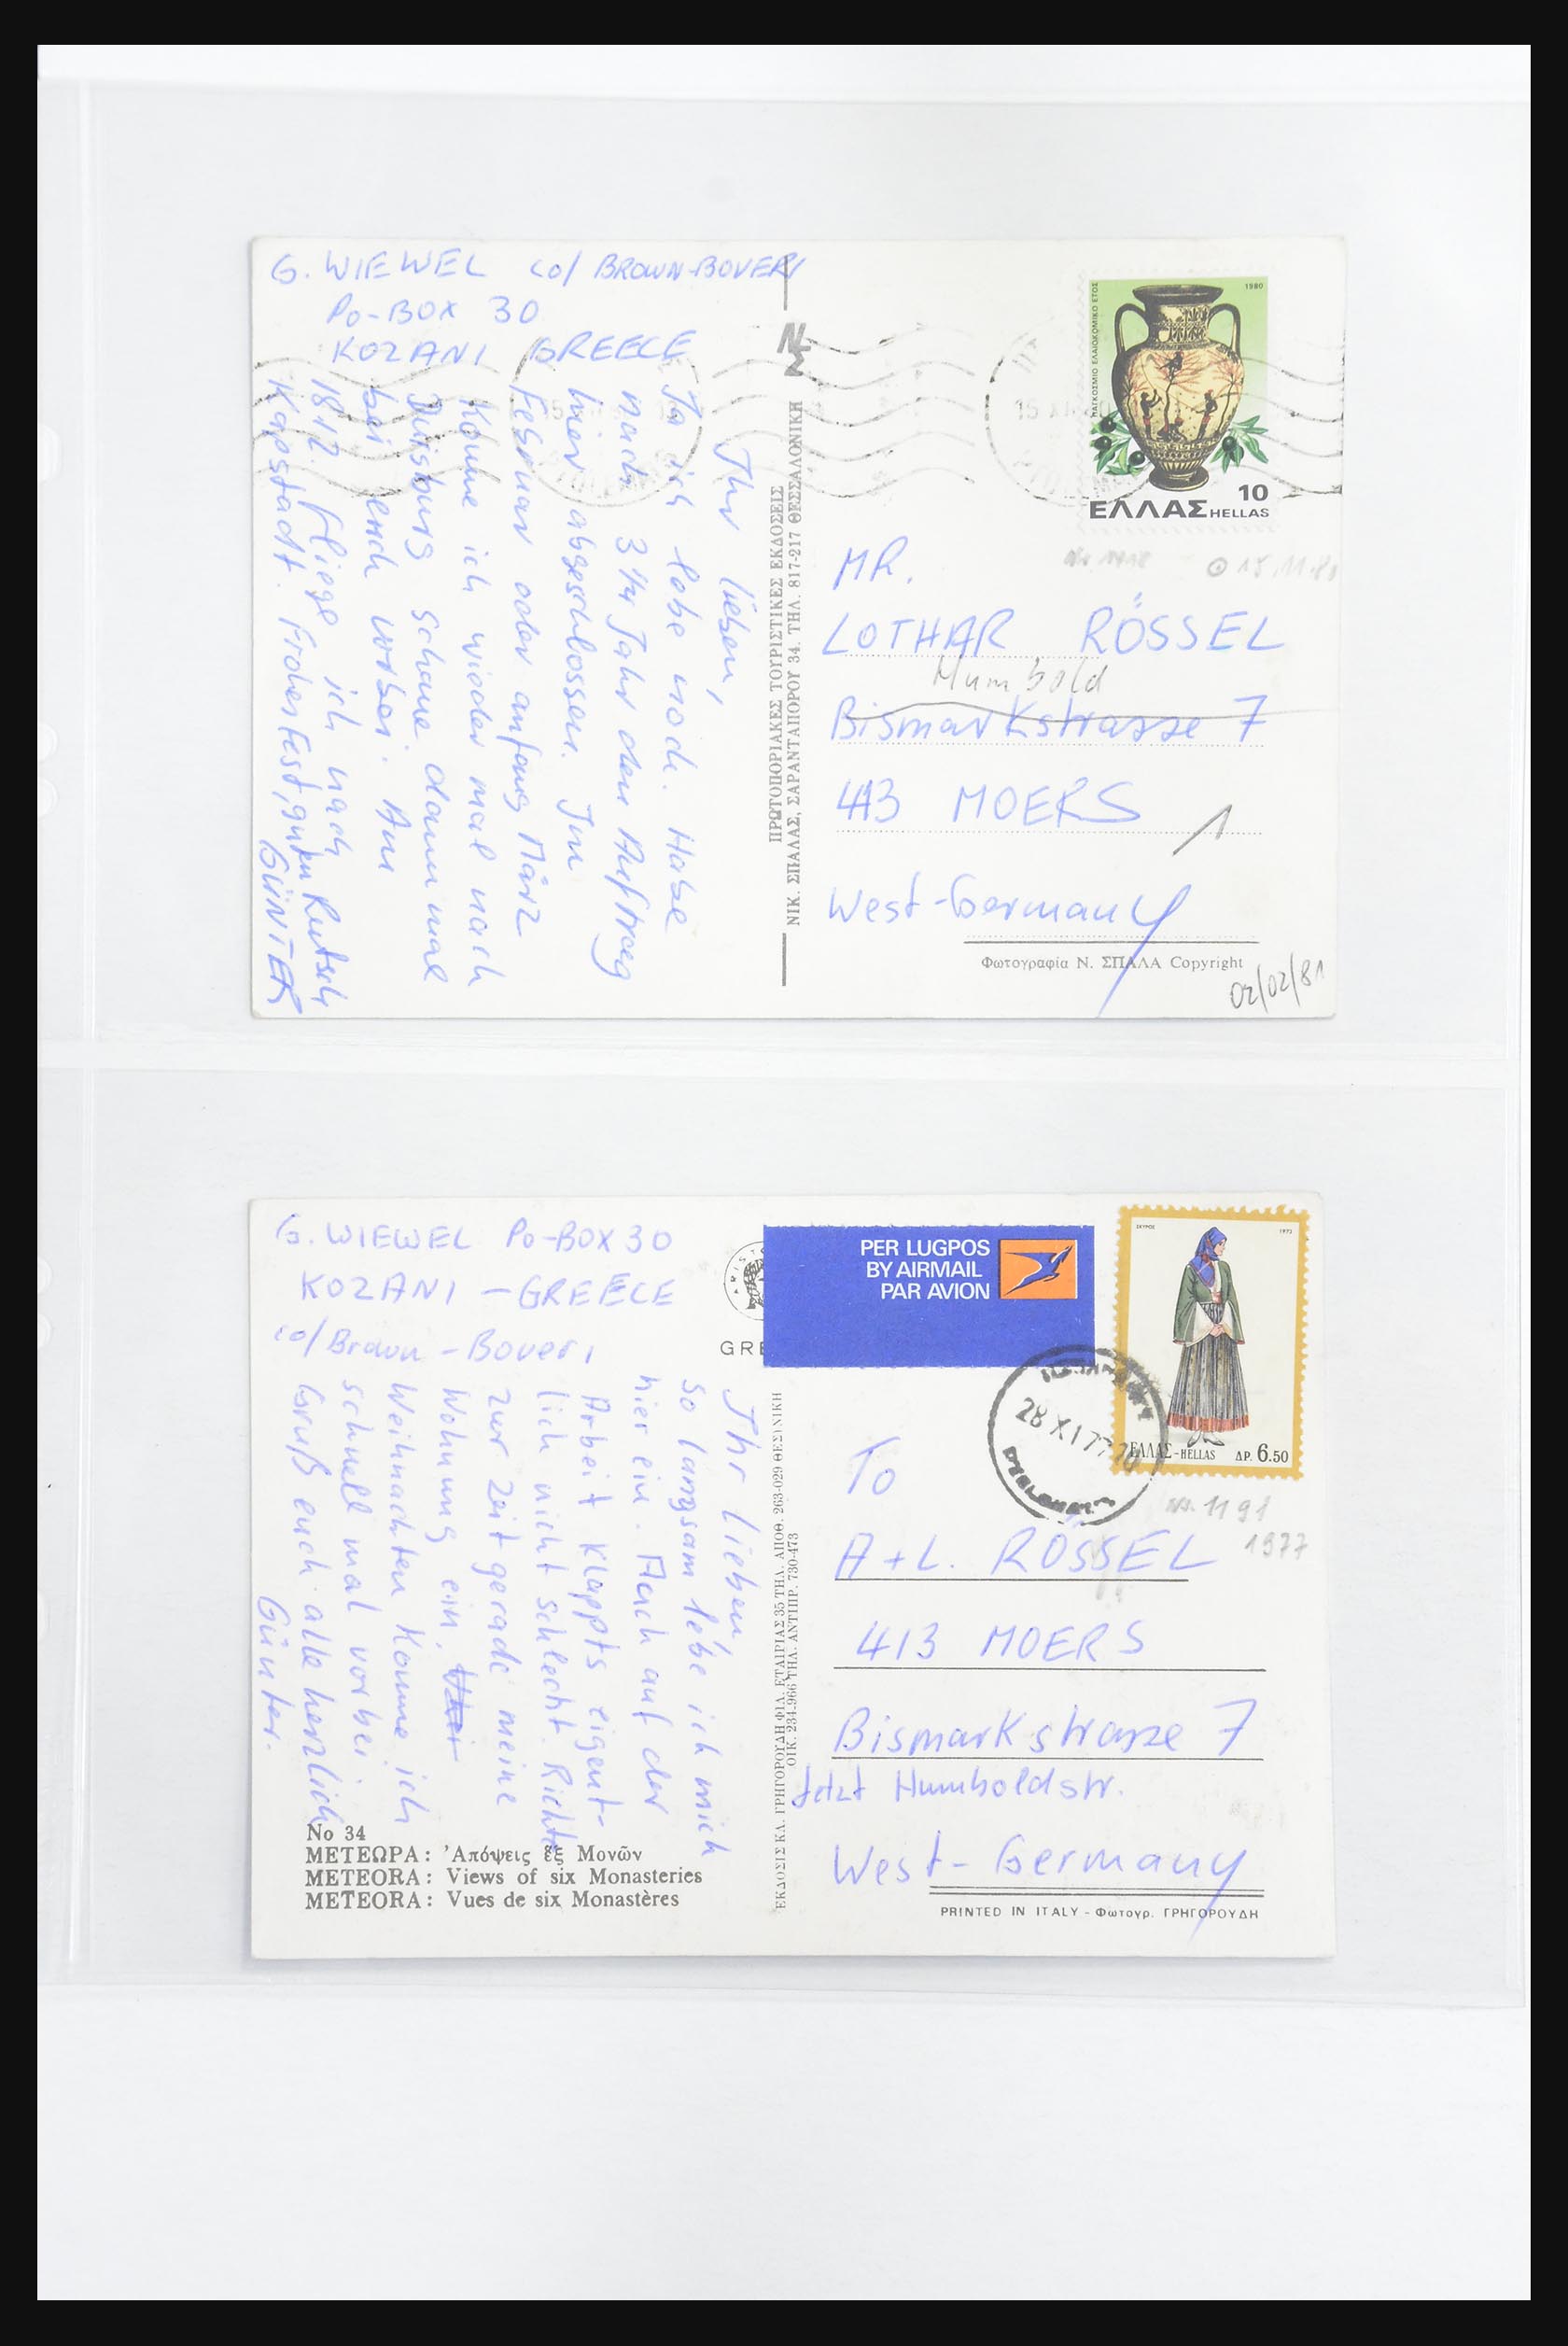 G. WIEWEL co/ BROWN-BOVERI
PO-BOX 30
KOZANI GREECE
Ihr lieben,
Ja ich lebe noch. Habe
nach 3 1/4 Jahr den Auftrag
hier abgeschlossen. Im
Februar oder anfang März
komme ich wieder mal nach
Duisburg schaue dann mal
bei euch vorbei. Am
18.12. fliege ich nach
Kapstadt. Frohes Fest, guten Rutsch
GÜNTER
ΠΡΩΤΟΠΟΡΙΑΚΕΣ ΤΟΥΡΙΣΤΙΚΕΣ ΕΚΔΟΣΕΙΣ
ΝΙΚ. ΣΠΑΛΑΣ, ΣΑΡΑΝΤΑΠΟΡΟΥ 34. ΤΗΛ. 817-217 ΘΕΣΣΑΛΟΝΙΚΗ
1980
ΠΑΓΚΟΣΜΙΟ ΕΛΑΙΟΚΟΜΙΚΟ ΕΤΟΣ
10
ΕΛΛΑΣ HELLAS
15.11.80
MR.
LOTHAR RÖSSEL
Humbold
Bismarkstrasse 7
413 MOERS
1
West-Germany
Φωτογραφία Ν. ΣΠΑΛΑ Copyright
02/02/81
G. WIEWEL PO-BOX 30
KOZANI - GREECE
co/ Brown - Boveri
GRE
PER LUGPOS
BY AIRMAIL
PAR AVION
ΣΚΥΡΟΣ
1973
ΕΛΛΑΣ-HELLAS ΔΡ. 6.50
28 XI 77
Nr. 1191
1977
Ihr lieben,
so langsam lebe ich mich
hier ein. Auch auf der
Arbeit klappts eigent-
lich nicht schlecht. Richte
zur Zeit gerade meine
Wohnung ein.
Weihnachten komme ich
schnell mal vorbei
Gruß euch alle herzlich
Günter.
ΕΚΔΟΣΙΣ ΚΛ. ΓΡΗΓΟΡΟΥΔΗ ΦΙΛ. ΕΤΑΙΡΙΑΣ 35 ΤΗΛ. ΑΠΟΘ. 263-029 ΘΕΣ)ΝΙΚΗ
ΟΙΚ. 234-966 ΤΗΛ. ΑΝΤΙΠΡ. 730-473
To
A + L. RÖSSEL
413 MOERS
Bismarkstrasse 7
Jetzt Humboldstr.
West-Germany
No 34
ΜΕΤΕΩΡΑ: Ἀπόψεις ἕξ Μονῶν
METEORA: Views of six Monasteries
METEORA: Vues de six Monastères
PRINTED IN ITALY - Φωτογρ. ΓΡΗΓΟΡΟΥΔΗ